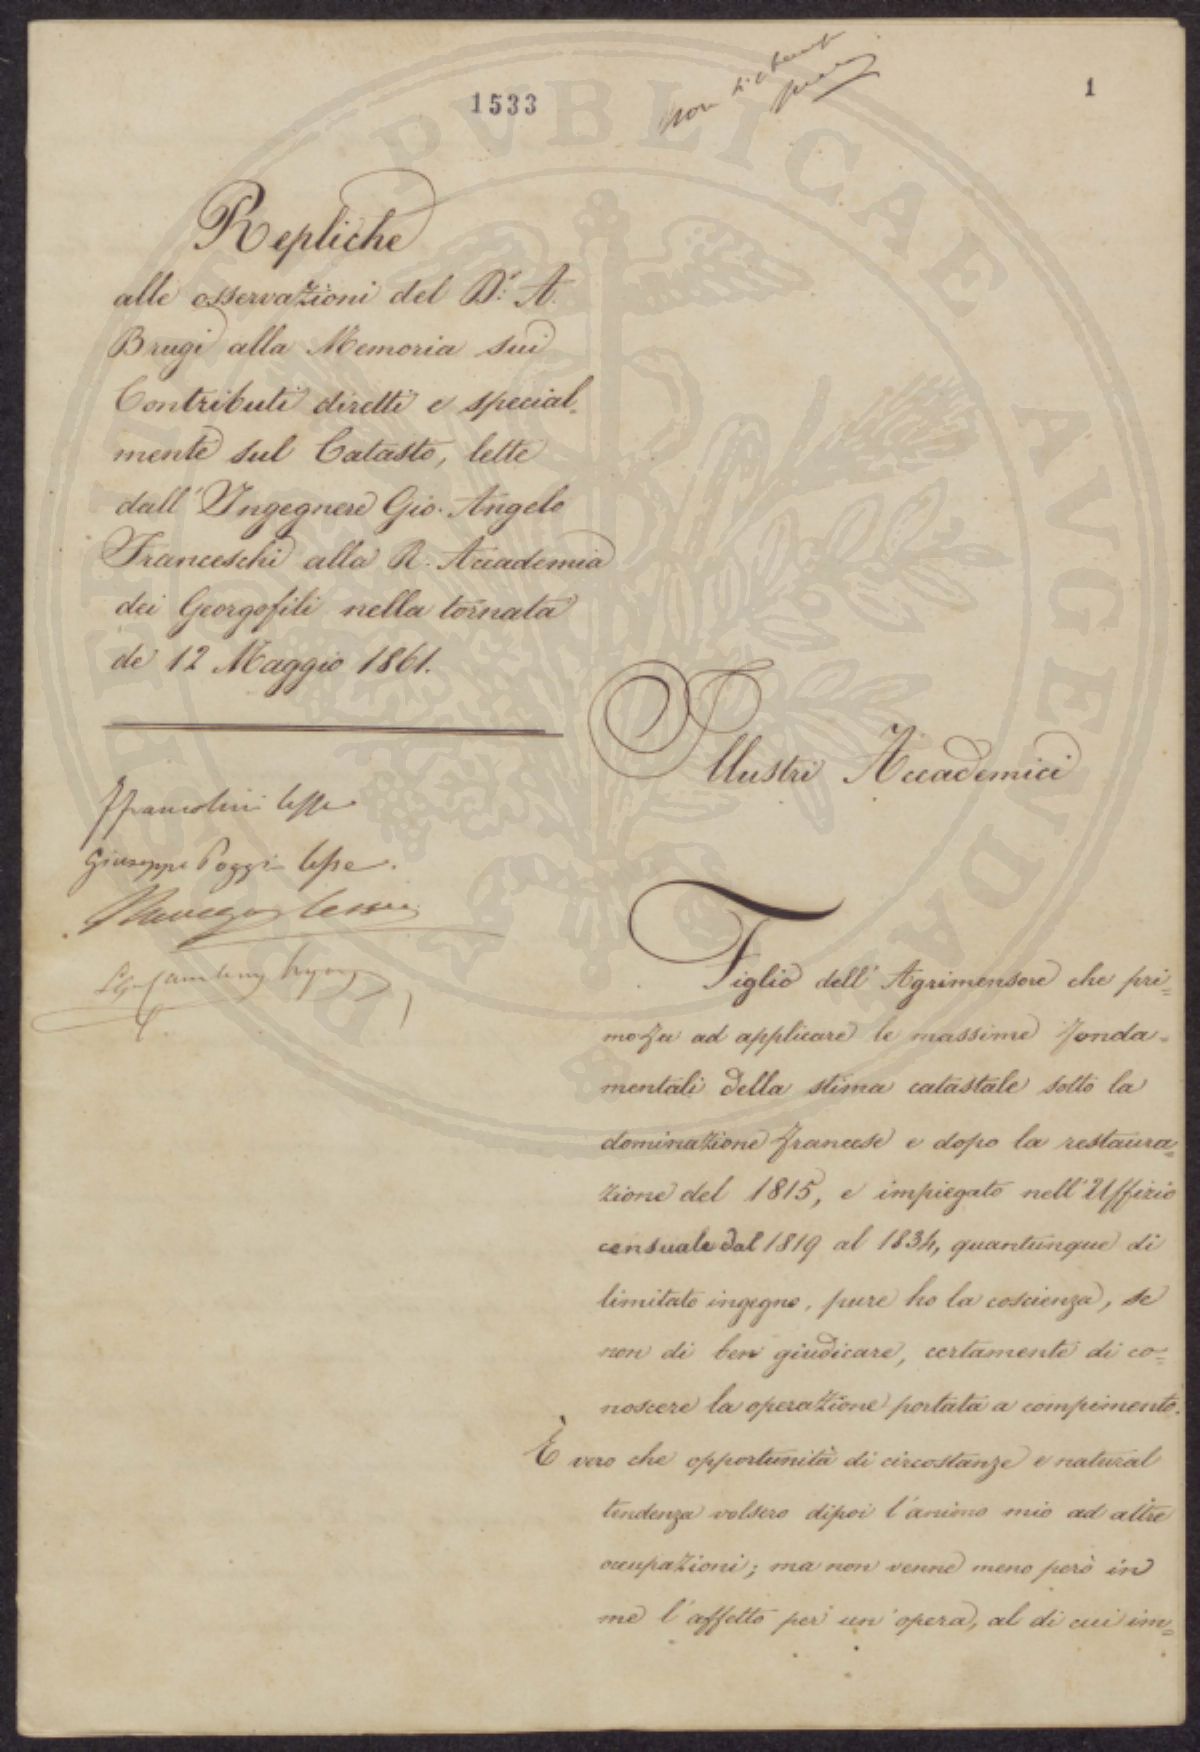 1533
1
non
Repliche
alle osservazioni del D.r A.
Brugi alla Memoria sui
Contributi diretti e special-
mente sul Catasto, lette
dall'Ingegnere Gio. Angelo
Franceschi alla R. Accademia
dei Georgofili nella tornata
de' 12 Maggio 1861.
Francolini lesse
Giuseppe Poggi lesse.
Illustri Accademici
Figlio dell'Agrimensore che pri=
mo fu ad applicare le massime fonda=
mentali della stima catastale sotto la
dominazione francese e dopo la restaura=
zione del 1815, e impiegato nell'Uffizio
censuale dal 1819 al 1834, quantunque di
limitato ingegno, pure ho la coscienza, se
non di ben giudicare, certamente di co=
noscere la operazione portata a compimento.
È vero che opportunità di circostanze e natural
tendenza volsero dipoi l'animo mio ad altre
occupazioni; ma non venne meno però in
me l'affetto per un'opera, al di cui im=
PUBLICAE AUGENDAE PROSPERITATI